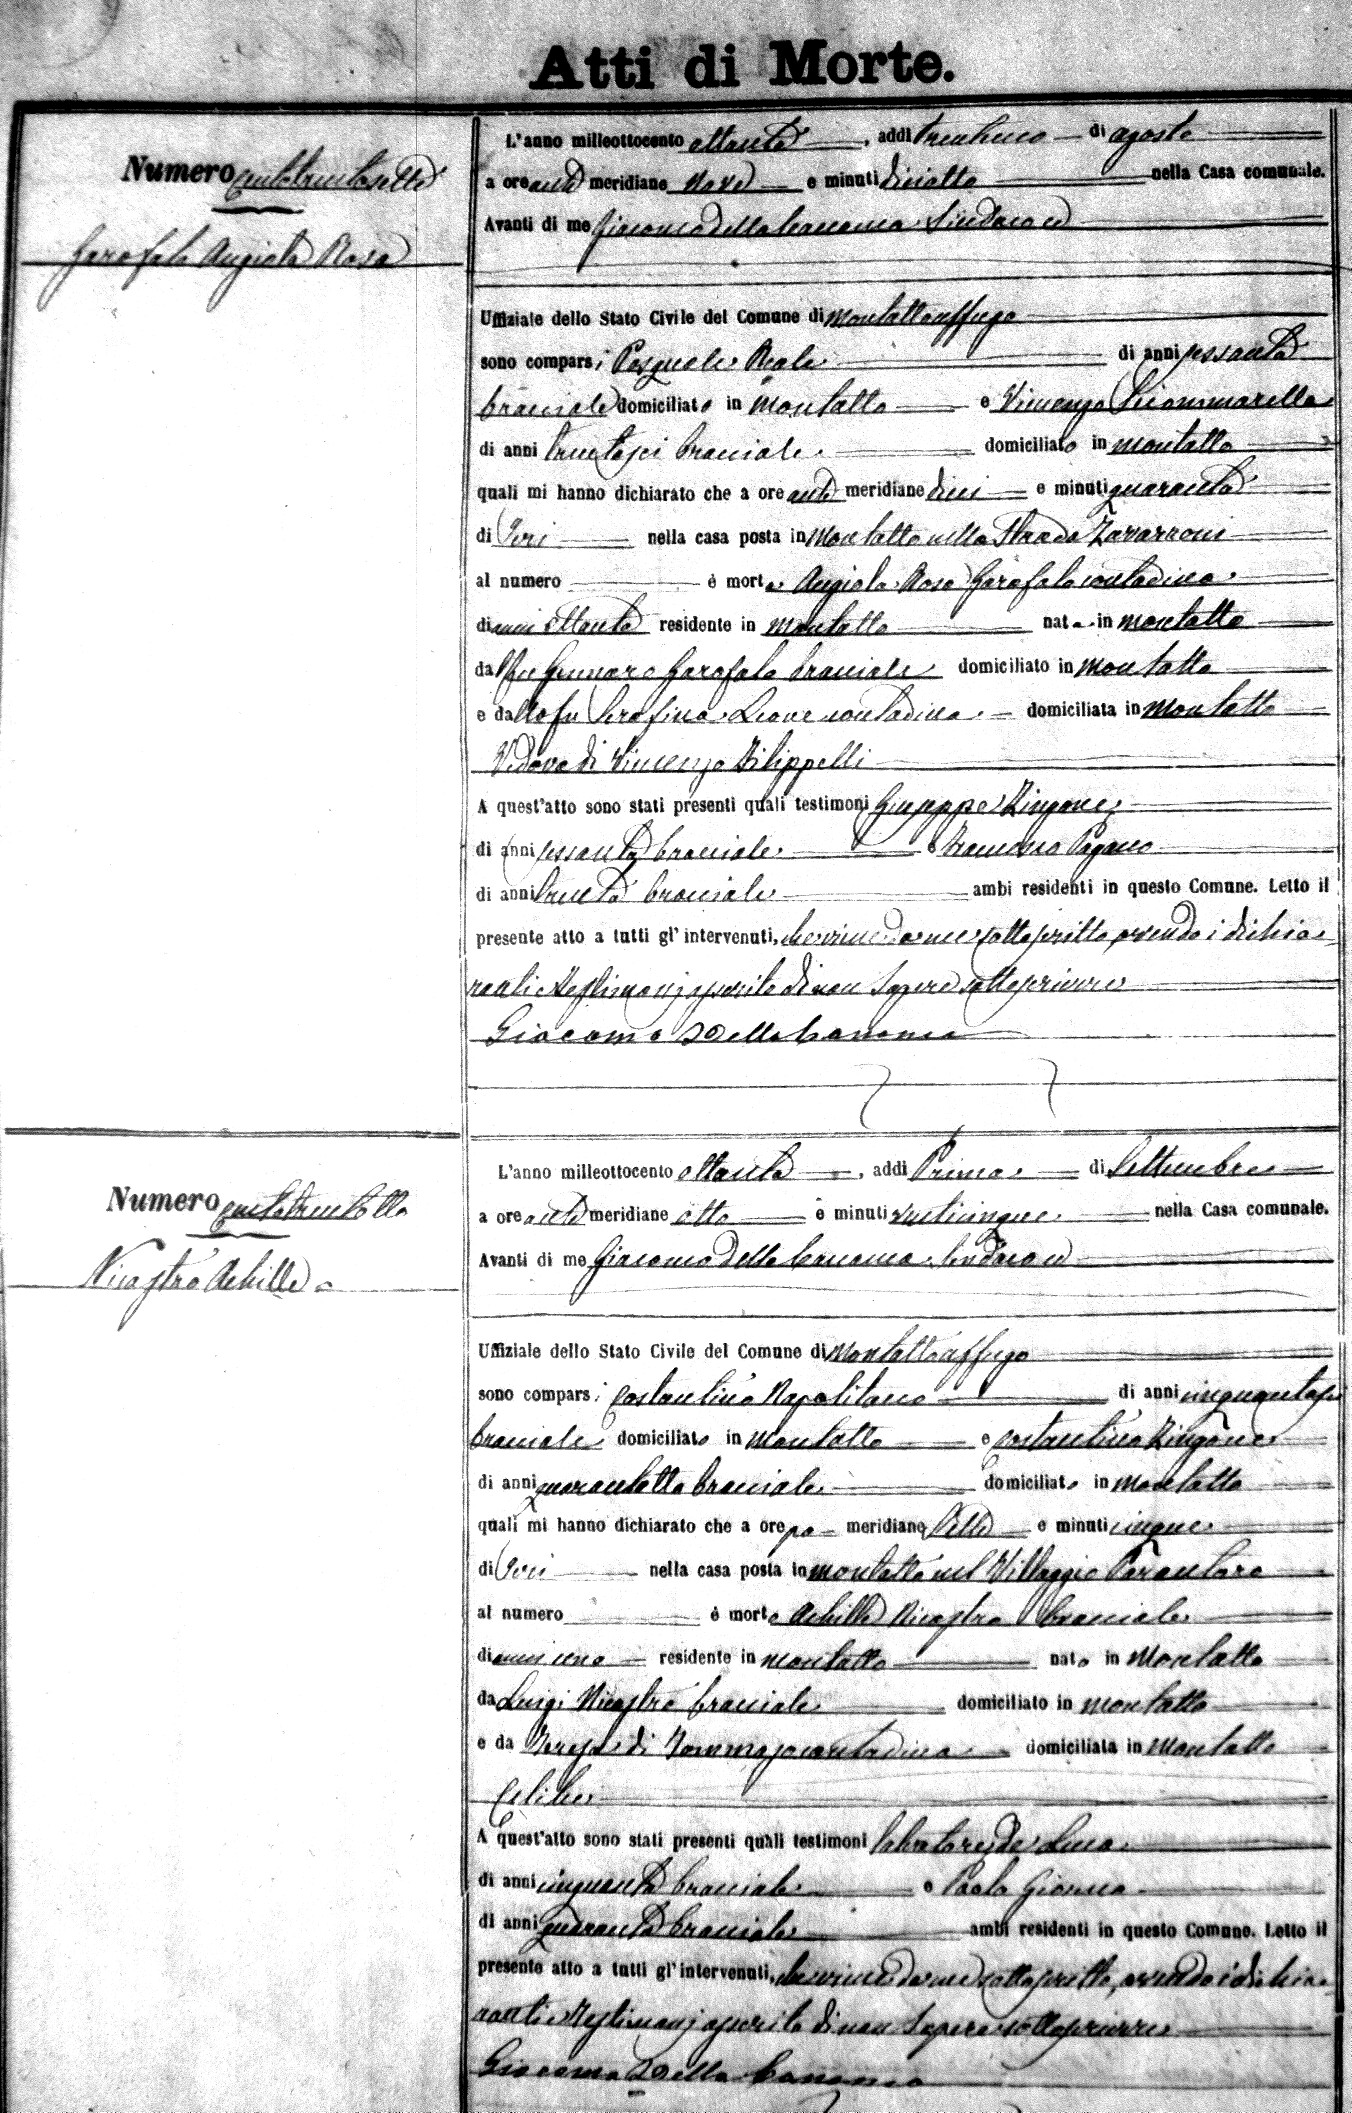 Atti di Morte.
Numero centotrentasette
Garofalo Angiola Rosa
L'anno milleottocento ottanta, addi trentuno di agosto
a ore anti meridiane nove e minuti diciotto nella Casa comunale.
Avanti di me Giacomo Della Cananea Sindaco ed
Uffiziale dello Stato Civile del Comune di Montaltouffugo
sono comparsi Pasquale Reale di anni sessanta
bracciale domiciliato in Montalto e Vincenzo Sicommarella
di anni trentasei bracciale domiciliato in Montalto
quali mi hanno dichiarato che a ore anti meridiane dieci e minuti quaranta
di Ieri nella casa posta in Montalto nella Strada Zavarroni
al numero è morta Angiola Rosa Garofalo contadina
di anni ottanta residente in Montalto nata in Montalto
dal fu Gennaro Garofalo bracciale domiciliato in Montalto
e dalla fu Serafina Leone contadina domiciliata in Montalto
Vedova di Vincenzo Filippelli
A quest'atto sono stati presenti quali testimoni Giuseppe Zingone
di anni sessanta bracciale e Francesco Pagano
di anni trenta bracciale ambi residenti in questo Comune. Letto il
presente atto a tutti gl'intervenuti, che viene da me sottoscritto, avendo i dichia-
ranti e testimonj asserito di non sapere sottoscrivere
Giacomo Della Cananea
Numero centotrentotto
Nicastro Achille
L'anno milleottocento ottanta, addi Primo di Settembre
a ore anti meridiane otto e minuti venticinque nella Casa comunale.
Avanti di me Giacomo Della Cananea Sindaco ed
Uffiziale dello Stato Civile del Comune di Montaltouffugo
sono comparsi Costantino Napolitano di anni cinquantasei
bracciale domiciliato in Montalto e Costantino Zingone
di anni quarantotto bracciale domiciliato in Montalto
quali mi hanno dichiarato che a ore po meridiane Sette e minuti cinque
di Ieri nella casa posta in Montalto nel Villaggio Parantoro
al numero è morto Achille Nicastro bracciale
di anni uno residente in Montalto nato in Montalto
da Luigi Nicastro bracciale domiciliato in Montalto
e da Teresa di Tommaso contadina domiciliata in Montalto
Celibe
A quest'atto sono stati presenti quali testimoni Salvatore de Luca
di anni cinquanta bracciale e Paolo Gionna
di anni quaranta bracciale ambi residenti in questo Comune. Letto il
presente atto a tutti gl'intervenuti, che viene da me sottoscritto, avendo i dichia-
ranti e testimonj asserito di non sapere sottoscrivere
Giacomo Della Cananea